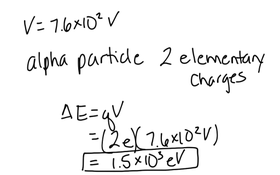 V = 7.6x10² V
alpha particle 2 elementary
charges
ΔE = qV
= (2e)(7.6x10²V)
= 1.5x10³ eV